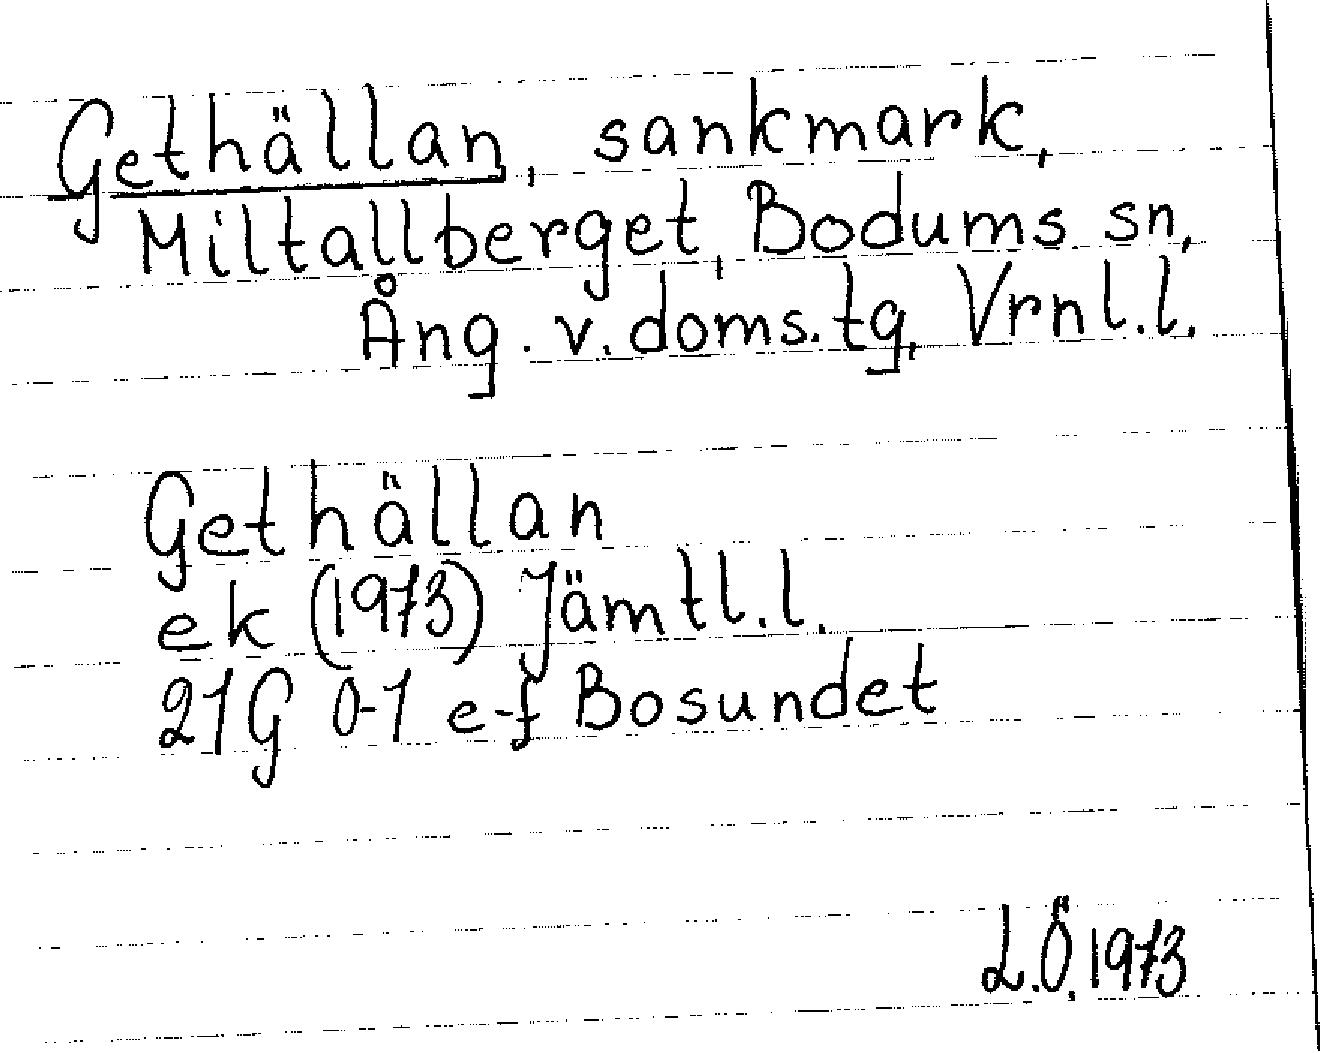 Gethällan, sankmark,
Miltallberget, Bodums sn,
Ång. v. doms.tg, Vrnl.l.
Gethällan
ek (1973) Jämtl.l.
21G 0-1 e-f Bosundet
L.Ö. 1973